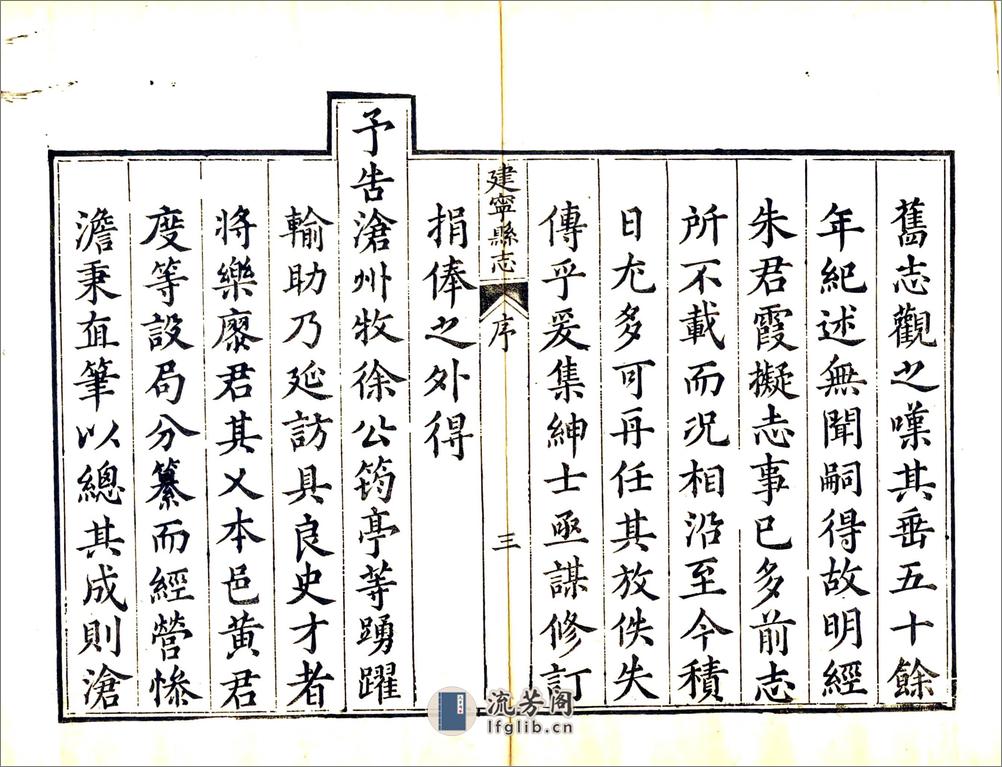 舊志觀之嘆其垂五十餘
年紀述無聞嗣得故明經
朱君霞擬志事已多前志
所不載而況相沿至今積
日尤多可再任其放佚失
傳乎爰集紳士亟謀修訂
建寧縣志 序 三
捐俸之外得
予告滄州牧徐公筠亭等踴躍
輸助乃延訪具良史才者
將樂廖君其乂本邑黃君
度等設局分纂而經營慘
澹秉直筆以總其成則滄
流芳阁
lfglib.cn